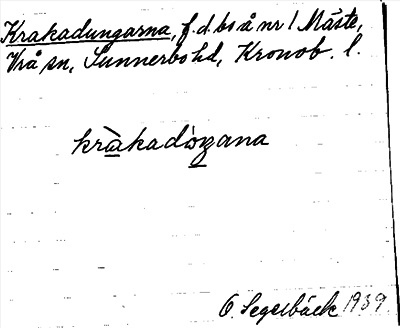 Krakadungarna, f.d. bs å nr 1 Måste,
Vrå sn, Sunnerbo hd, Kronob. l.
kràkadòŋana
O. Segelbäck 1939